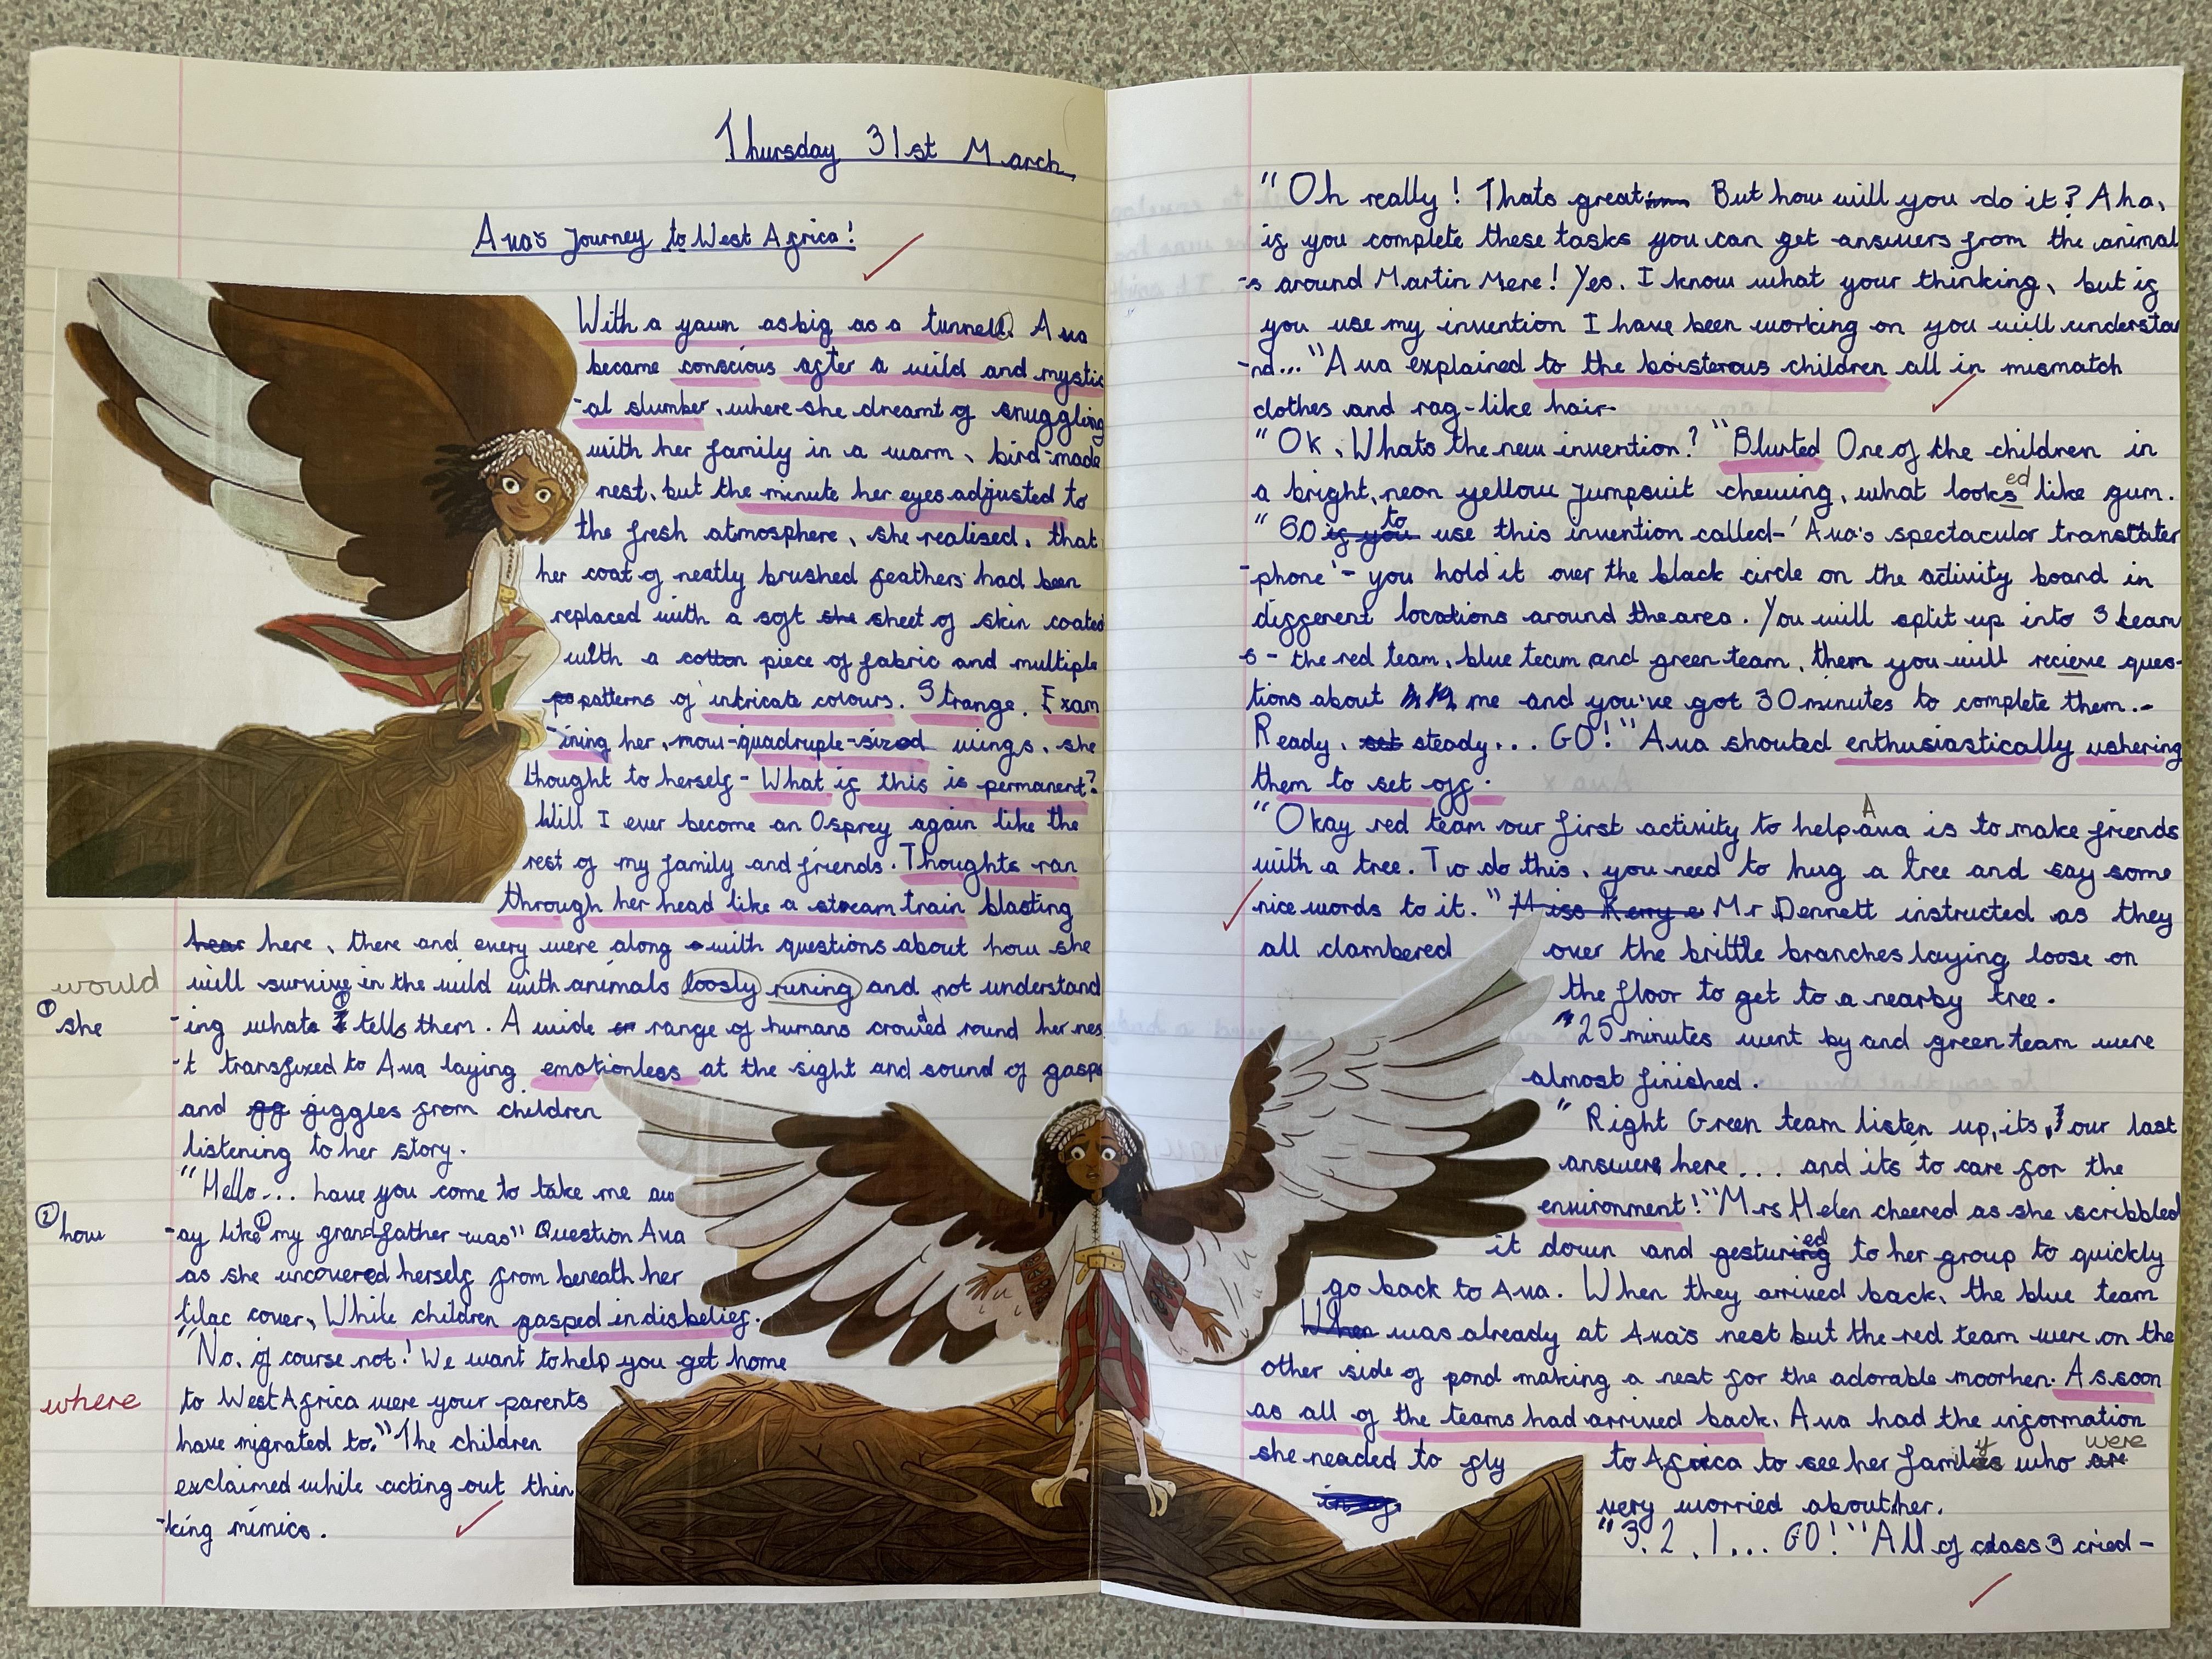 Thursday 31st March
Ava's Journey to West Africa!
With a yawn as big as a tunnel. Ava
became conscious after a wild and mystic
-al slumber, where she dreamt of snuggling
with her family in a warm, bird-made
nest, but the minute her eyes adjusted to
the fresh atmosphere, she realised, that
her coat of neatly brushed feathers had been
replaced with a soft she sheet of skin coated
with a cotton piece of fabric and multiple
po patterns of intricate colours. Strange. Exam
-ining her, now-quadruple-sized wings, she
thought to herself - What if this is permanent?
Will I ever become an Osprey again like the
rest of my family and friends. Thoughts ran
through her head like a stream train blasting
hear here, there and every were along with questions about how she
would
will survive in the wild with animals loosly runing and not understand
① she
-ing whats ① tells them. A wide or range of humans crowded round her nes
-t transfixed to Ava laying emotionless at the sight and sound of gasps
and gg giggles from children
listening to her story.
"Hello... have you come to take me aw
② how
-ay like ② my grandfather was" Question Ava
as she uncovered herself from beneath her
lilac cover, While children gasped in disbelief.
"No, of course not! We want to help you get home
where
to West Africa were your parents
have migrated to." The children
exclaimed while acting out thin
-king mimics.
"Oh really! Thats great But how will you do it? Aha,
if you complete these tasks you can get answers from the animal
-s around Martin Mere! Yes, I know what your thinking, but if
you use my invention I have been working on you will understa
-nd..." Ava explained to the boisterous children all in mismatch
clothes and rag-like hair.
"Ok, Whats the new invention?" Blurted One of the children in
a bright, neon yellow Jumpsuit chewing, what looks ed like gum.
"So if you to use this invention called-'Ava's spectacular translater
-phone'- you hold it over the black circle on the activity board in
different locations around the area. You will split up into 3 team
s - the red team, blue team and green team, them you will recieve ques-
tions about me and you've got 30 minutes to complete them.-
Ready, set steady... GO!" Ava shouted enthusiastically ushering
them to set off.
"Okay red team our first activity to help A ava is to make friends
with a tree. To do this, you need to hug a tree and say some
nice words to it." Miss Kerry e Mr Dennett instructed as they
all clambered over the brittle branches laying loose on
the floor to get to a nearby tree.
"25 minutes went by and green team were
almost finished.
"Right Green team listen up, its, our last
answers here... and its to care for the
environment!" Mrs Helen cheered as she scribbled
it down and gesturing ed to her group to quickly
go back to Ava. When they arrived back, the blue team
When was already at Ava's nest but the red team were on the
other side of pond making a nest for the adorable moorhen. As soon
as all of the teams had arrived back, Ava had the information
she needed to fly to Africa to see her family who are were
very worried about her.
"3, 2, 1... GO!" All of class 3 cried-